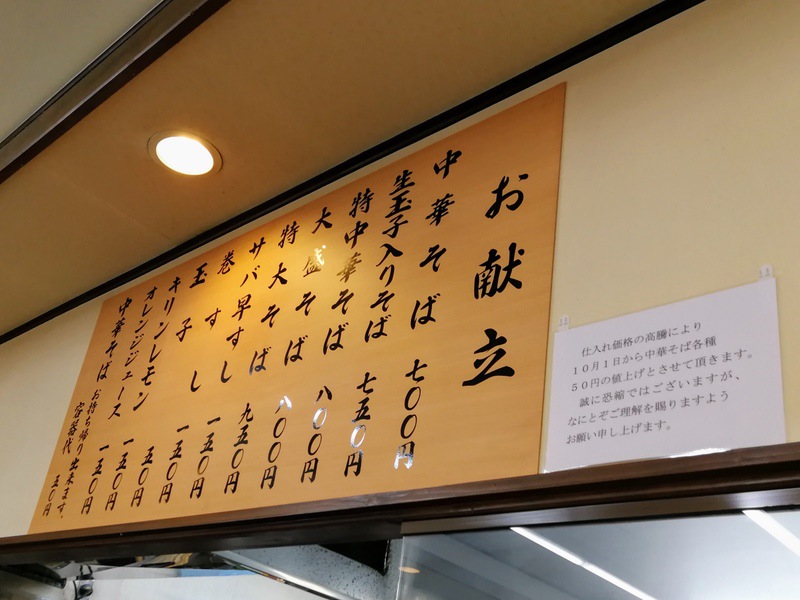 お献立
中華そば 七〇〇円
生玉子入りそば 七五〇円
特中華そば 八〇〇円
大盛そば 八〇〇円
特大そば 九五〇円
サバ早すし 一五〇円
巻すし 一五〇円
玉子 五〇円
キリンレモン 一五〇円
オレンジジュース 一五〇円
中華そば お持ち帰り出来ます。
容器代 五〇円
仕入れ価格の高騰により
１０月１日から中華そば各種
５０円の値上げとさせて頂きます。
誠に恐縮ではございますが、
なにとぞご理解を賜りますよう
お願い申し上げます。